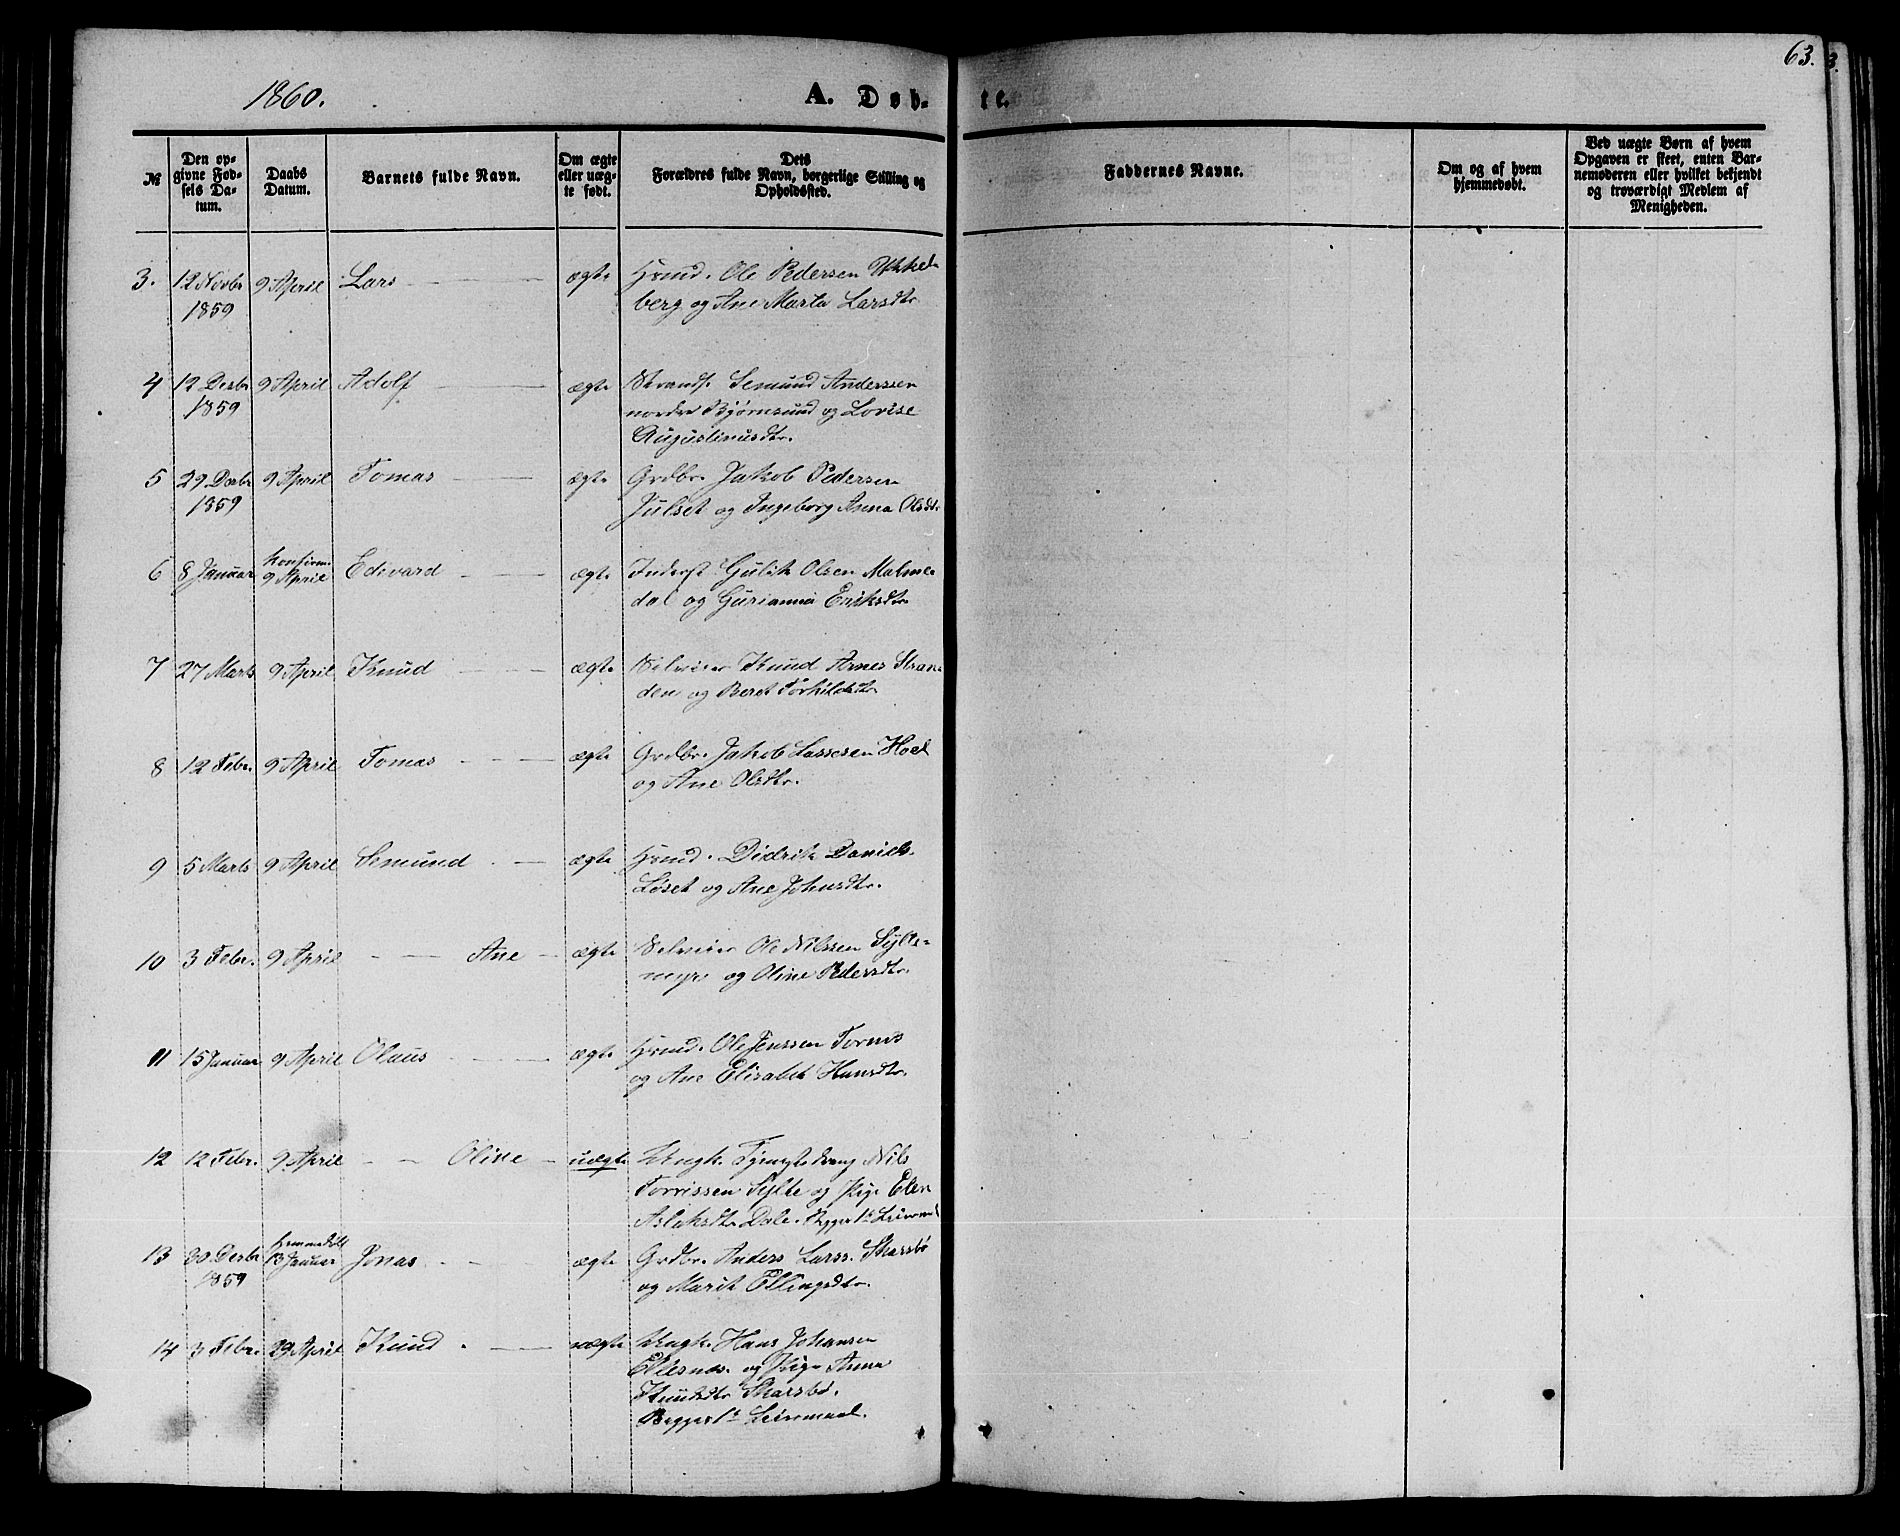 63.
1860. A. Døb- te.
№ Den opgivne Fødsels Datum. Daabs Datum. Barnets fulde Navn. Om ægte eller uægte født. Dets Forældres fulde Navn, borgerlige Stilling og Opholdssted. Faddernes Navne. Om og af hvem hjemmedøbt. Ved uægte Børn af hvem Opgaven er skeet, enten Barnemoderen eller hvilket bekjendt og troværdigt Medlem af Menigheden.
3. 12 Novbr 9 April Lars ægte Hrmd. Ole Pedersen
1859 berg og Ane Marta Larsdtr
4 12 Desbr 9 April Adolf ægte Strands. Semund Anderssen
1859 nordre Bjørnsund og Lovise
Augustinusdtr.
5 29 Desbr 9 April Tomas ægte Grdbr. Jakob Pedersen
1859 Julset og Ingeborg Anna Olsdtr
6 8 Januar Konfirm. 9 April Edivard ægte Inderst Gulik Olsen Malme-
dal og Gurianna Eriksdtr
7 27 Marts 9 April Knud ægte Knud Arnes Stran-
den og Beret Torkildsdtr
8 12 Febr. 9 April Tomas ægte Grdbr. Jakob Lassesen Hoel
og Ane Olsdtr.
9 5 Marts 9 April Semund ægte Hrmd. Didrik Daniels.
Løset og Ane Johnsdtr.
10 3 Febr. 9 April Ane ægte Ole Nilssen Sylte-
myr og Oline Pedersdtr.
11 15 Januar 9 April Olaus ægte Hrmd. Ole Jenssen Tornes
og Ane Elisabet Hansdtr.
12 12 Febr. 9 April Oline uægte Ungk. Nils
Torrissen Sylte og Pige Elen
Aslaksdtr Dale. Begges 1ste Leiermaal
13 30 Desbr Hjemmedøbt 13 Januar Jonas ægte Grdbr. Anders Larss. Skarsbø
1859 og Marit Ellingsdtr.
14 3 Febr. 29 April Knud uægte Ungk. Hans Johansen
Ellesnes. og Pige Anna
Knudsdtr Skarsbø.
Begges 1ste Leiermaal.